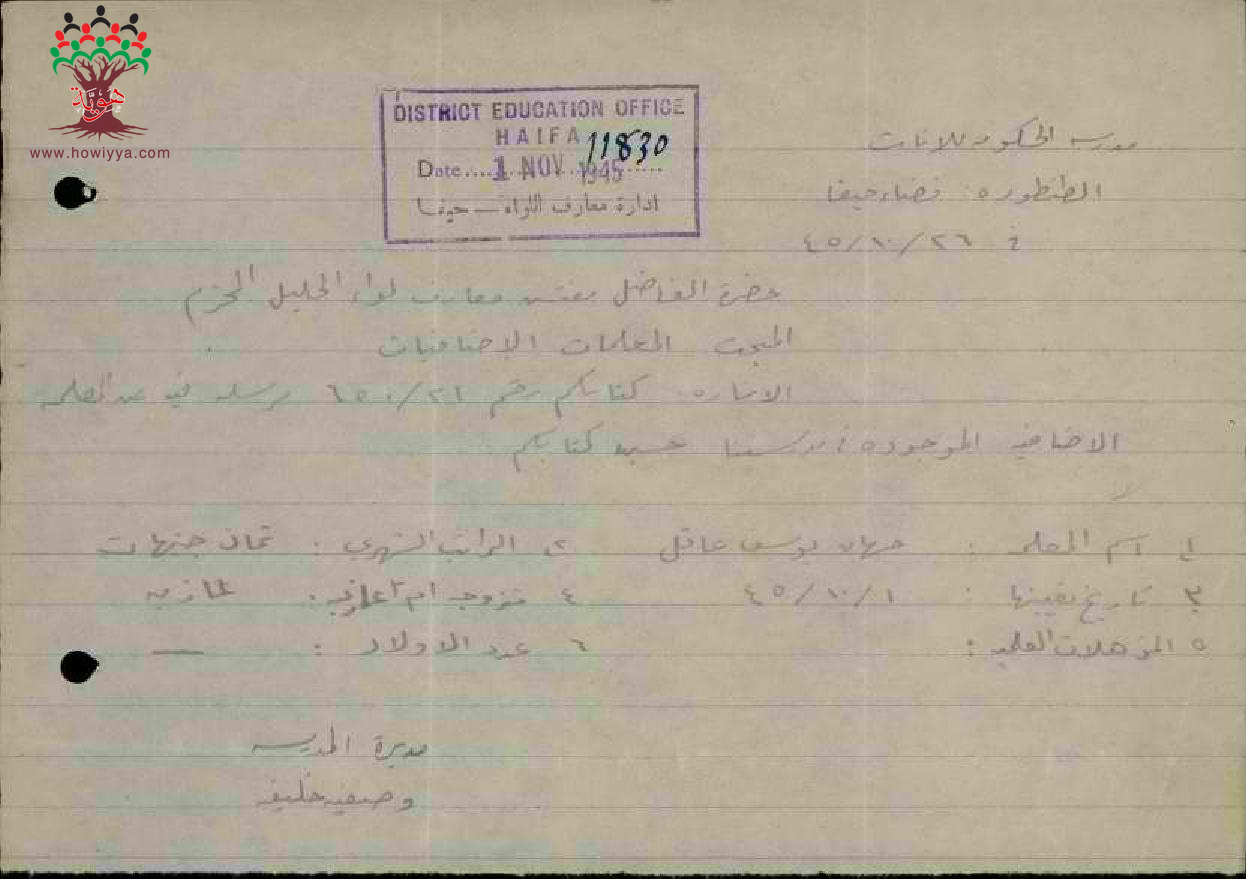 هوية
www.howiyya.com
DISTRICT EDUCATION OFFICE
HAIFA
11830
Date.... 1 NOV 1945 ......
ادارة معارف اللواء — حيفا
مدرسة الحكومه للانات
الطنطوره. قضاء حيفا
في ٢٦/١٠/٤٥
حضرة الفاضل مفتش معارف لواء الجليل المحترم
المبحث المعلمات الاضافيات
الاشاره. كتابكم رقم ٦٥٠/٢١ نرسله فيه عن المعلمه
الاضافيه الموجوده في مدرستنا حسب كتابكم
١ اسم المعلمه : جهان يوسف عاقل
٢ الراتب الشهري : ثمان جنيهات
٣ تاريخ تعيينها : ١/١٠/٤٥
٤ متزوجه ام عازبه : عازبه
٥ المؤهلات العلميه :
٦ عدد الاولاد : —
مديرة المدرسه
وصفيه خليفه